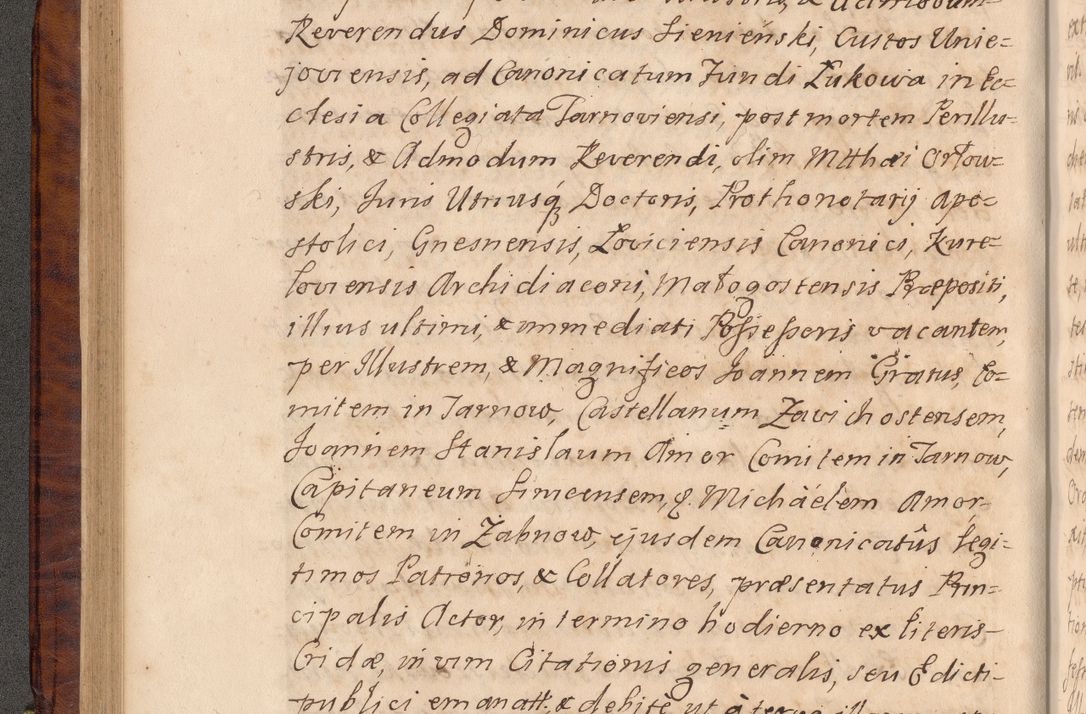 Reverendus Dominicus Sieniénski, Custos Unie=
joviensis, ad Canonicatum Fundi Łukowa in Ec=
clesia Collegiata Tarnoviensi, post mortem Perillu=
stris, & Admodum Reverendi, olim Mtthæi Orłow=
ski, Juris Utriusq́ Doctoris, Prothonotarij Apo=
stolici, Gnesnensis, Loviciensis Canonici, Kure=
loviensis Archidiaconi, Małogostensis Præpositi,
illius ultimi, & immediati Possessoris vacantem,
per Illustrem, & Magnificos Joannem Gratus, Co=
mitem in Tarnow, Castellanum Zavichostensem,
Joannem Stanislaum Amor Comitem in Tarnow,
Capitaneum Simcensem, & Michaëlem Amor
Comitem in Zabnow, ejusdem Canonicatûs legi=
timos Patronos, & Collatores, præsentatus Prin=
cipalis Actor, in termino hodierno ex literis
Cridæ, in vim Citationis generalis, seu Edicti
publici emanatt, & debitè ut à tergo